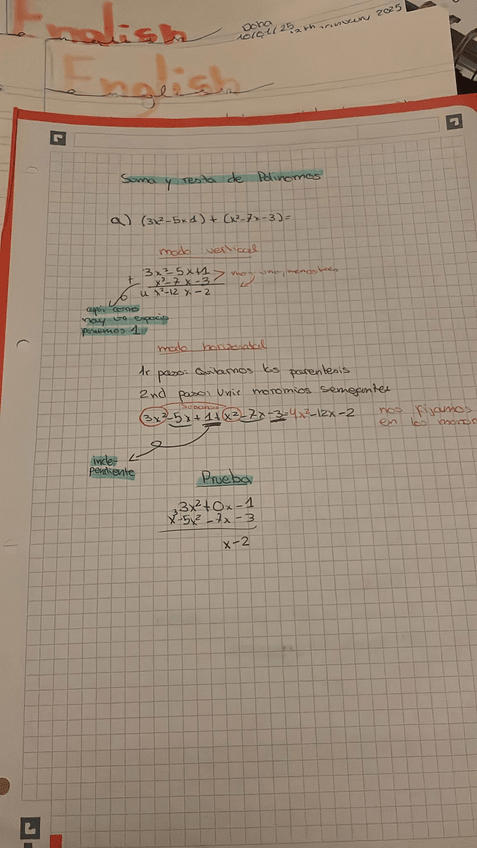 English
Doha
10/01/25
2025
English
English
Suma y resta de Polinomos
a) (3x²-5x1) + (x²-7x-3)=
modo vertical
3x²-5x+1 > mas uno, menos tres
+ x²-7x-3
4x²-12x-2
aqui como
hay un espacio
ponemos 1
modo horizontal
1r paso: Quitamos los parentesis
2nd paso: Unir monomios semejantes
3x²-5x+1+(x²)-7x-3=4x²-12x-2 nos fijamos
en los
inde-
pendiente
Prueba
3x²+0x-1
x³-5x²-7x-3
x-2